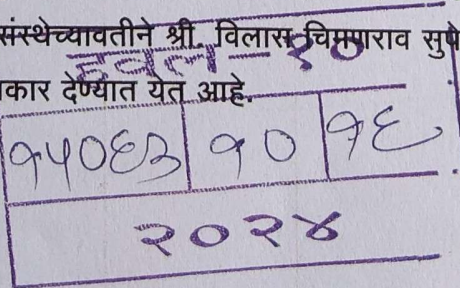 संस्थेच्यावतीने श्री. विलास चिमणराव सुपे
हवल-१०
कार देण्यात येत आहे.
१५०६३ १० १६
२०२४